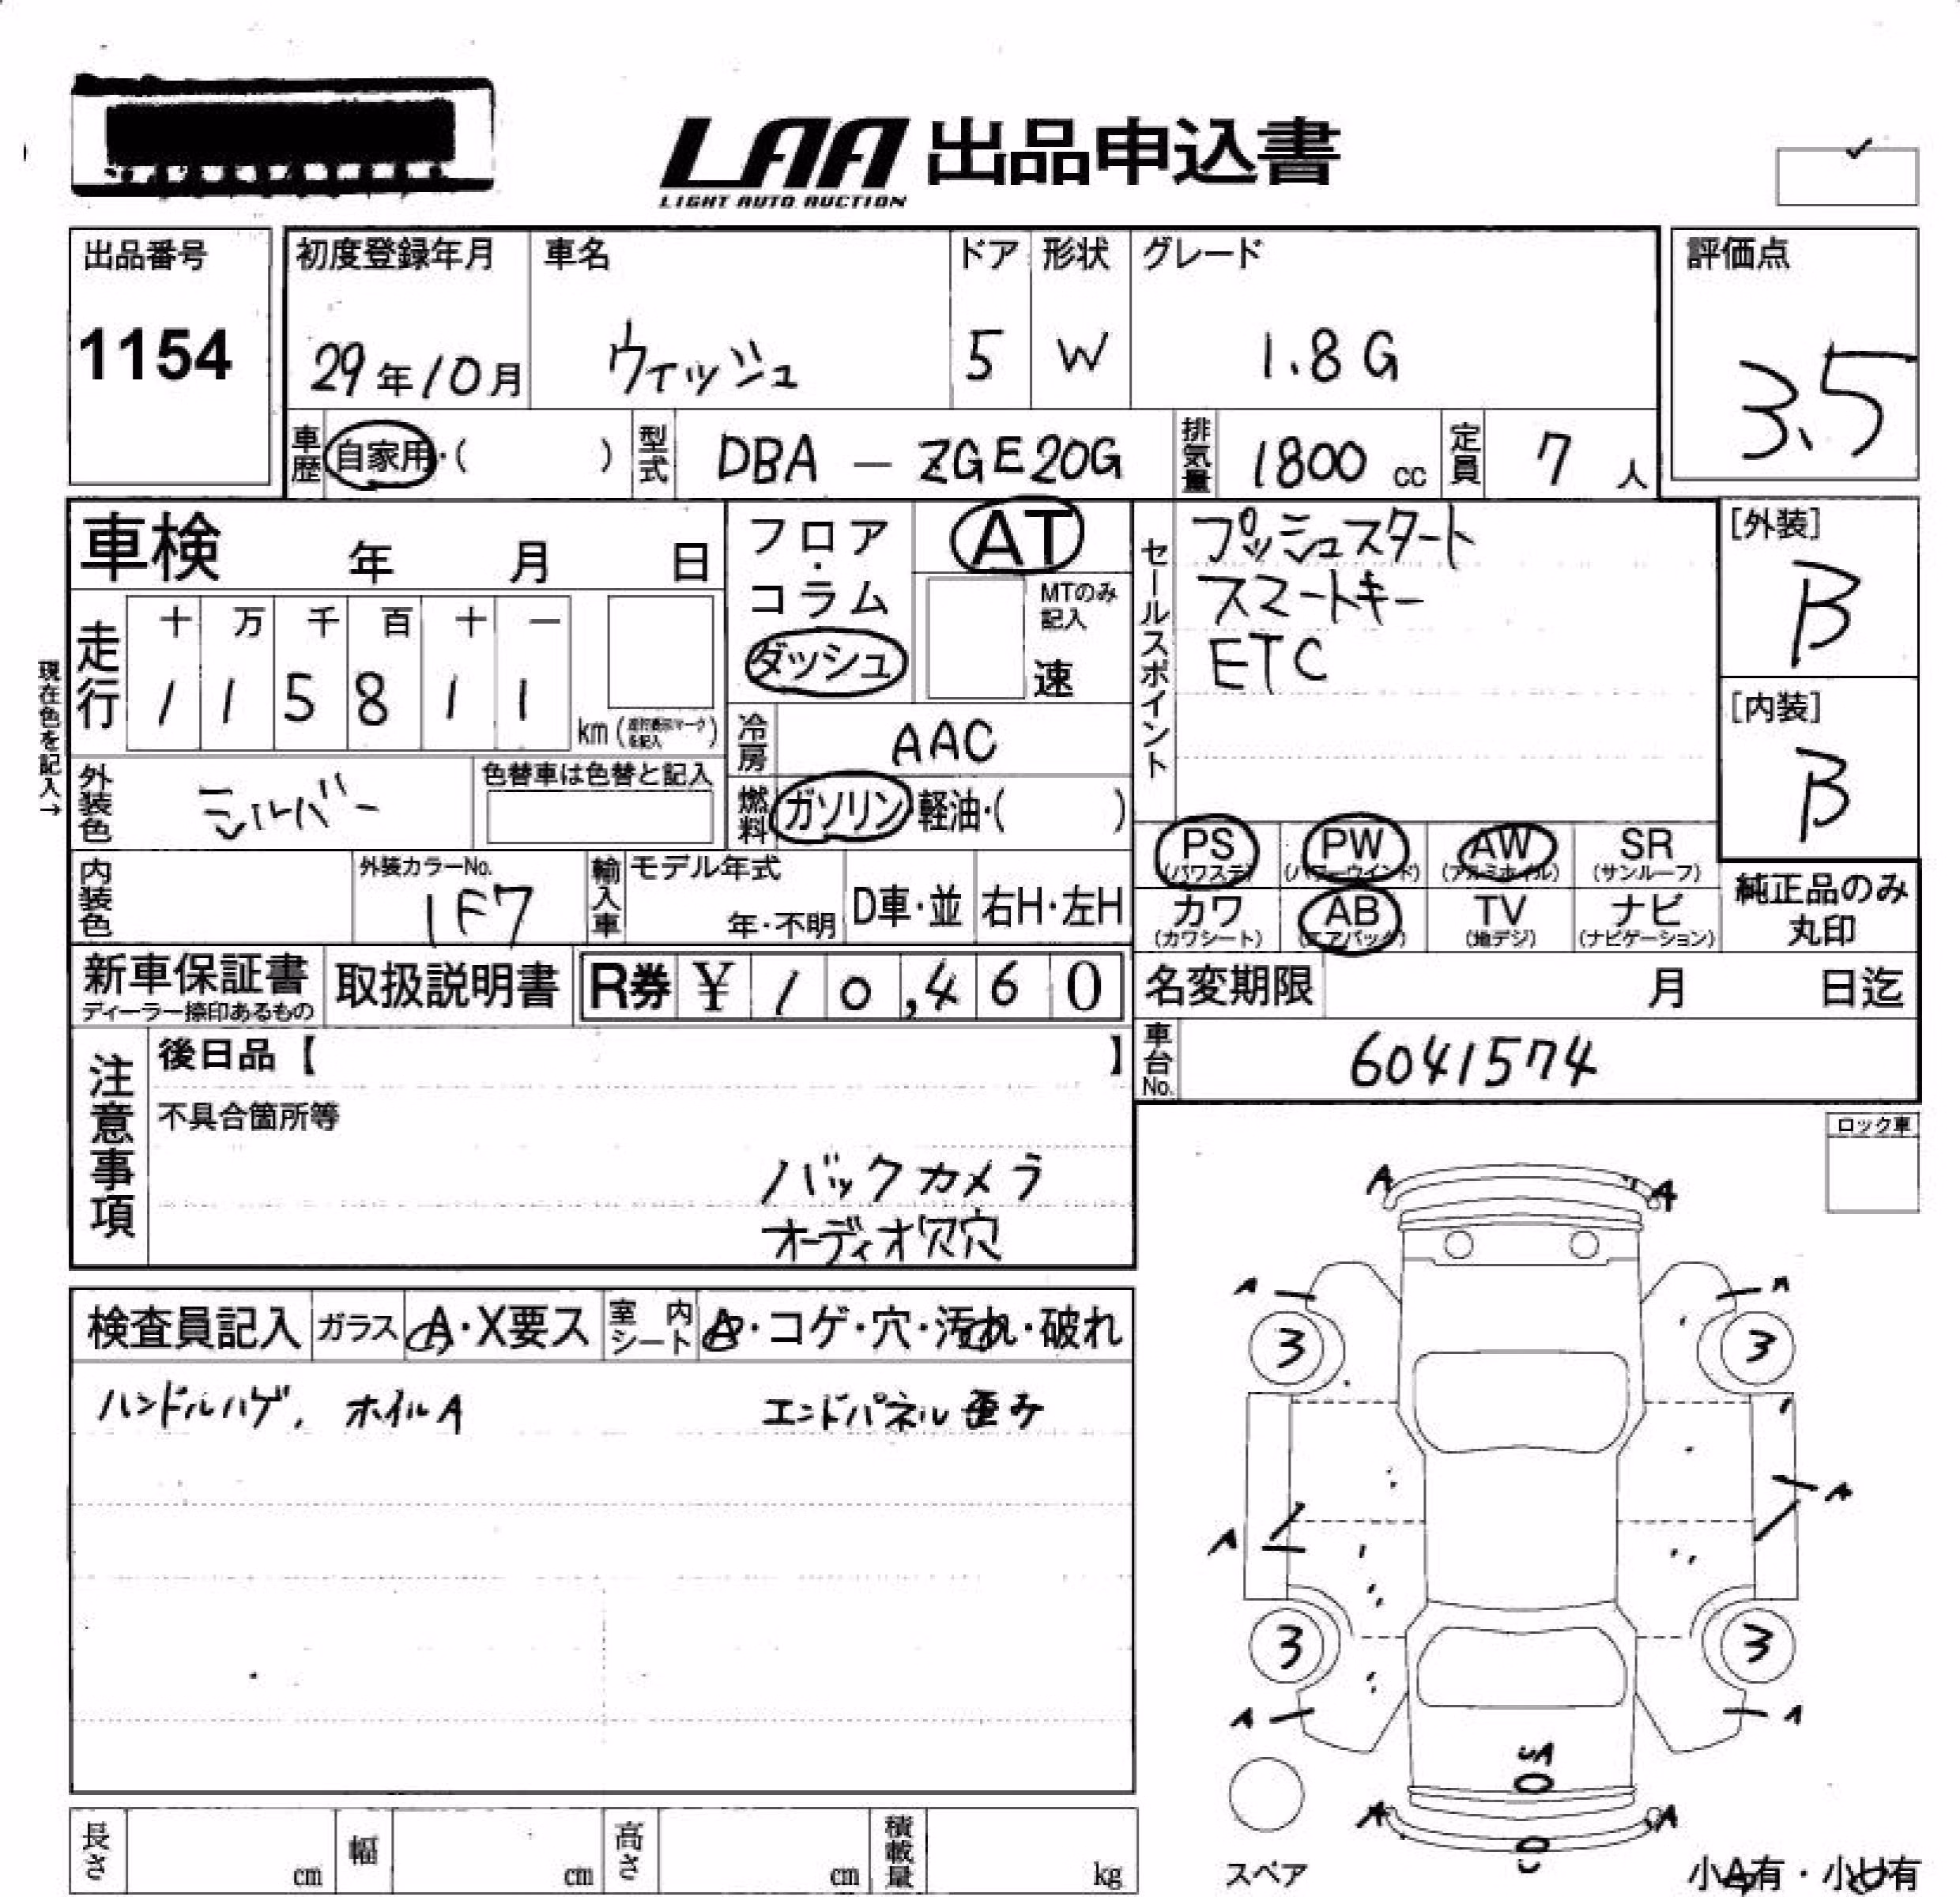 LAA 出品申込書
LIGHT AUTO AUCTION
出品番号
1154
初度登録年月
29年10月
車名
ウィッシュ
ドア
5
形状
W
グレード
1.8G
評価点
3.5
車歴
自家用・( )
型式
DBA - ZGE20G
排気量
1800 cc
定員
7 人
車検 年 月 日
フロア・コラム
ダッシュ
AT
MTのみ記入
速
セールスポイント
プッシュスタート
スマートキー
ETC
[外装]
B
[内装]
B
現在色を記入→
走行
十 万 千 百 十 一
1 1 5 8 1 1
km
冷房
AAC
燃料
ガソリン・軽油・( )
外装色
シルバー
色替車は色替と記入
PS
(パワステ)
PW
(パワーウインド)
AW
(アルミホイル)
SR
(サンルーフ)
カワ
(カワシート)
AB
(エアバック)
TV
(地デジ)
ナビ
(ナビゲーション)
純正品のみ
丸印
内装色
外装カラーNo.
1F7
輸入車
モデル年式
年・不明
D車・並
右H・左H
新車保証書
ディーラー捺印あるもの
取扱説明書
R券 ¥ 10,460
名変期限 月 日迄
車台No.
6041574
注意事項
後日品【 】
不具合箇所等
バックカメラ
オーディオ穴穴
ロック車
検査員記入
ガラス
A・X要ス
室内シート
A・コゲ・穴・汚れ・破れ
ハンドルハゲ, ホイルA
エンドパネル歪み
A A
A A
3 3
A
A
3 3
A A
UA
A A
U
スペア
小A有・小U有
長さ cm
幅 cm
高さ cm
積載量 kg